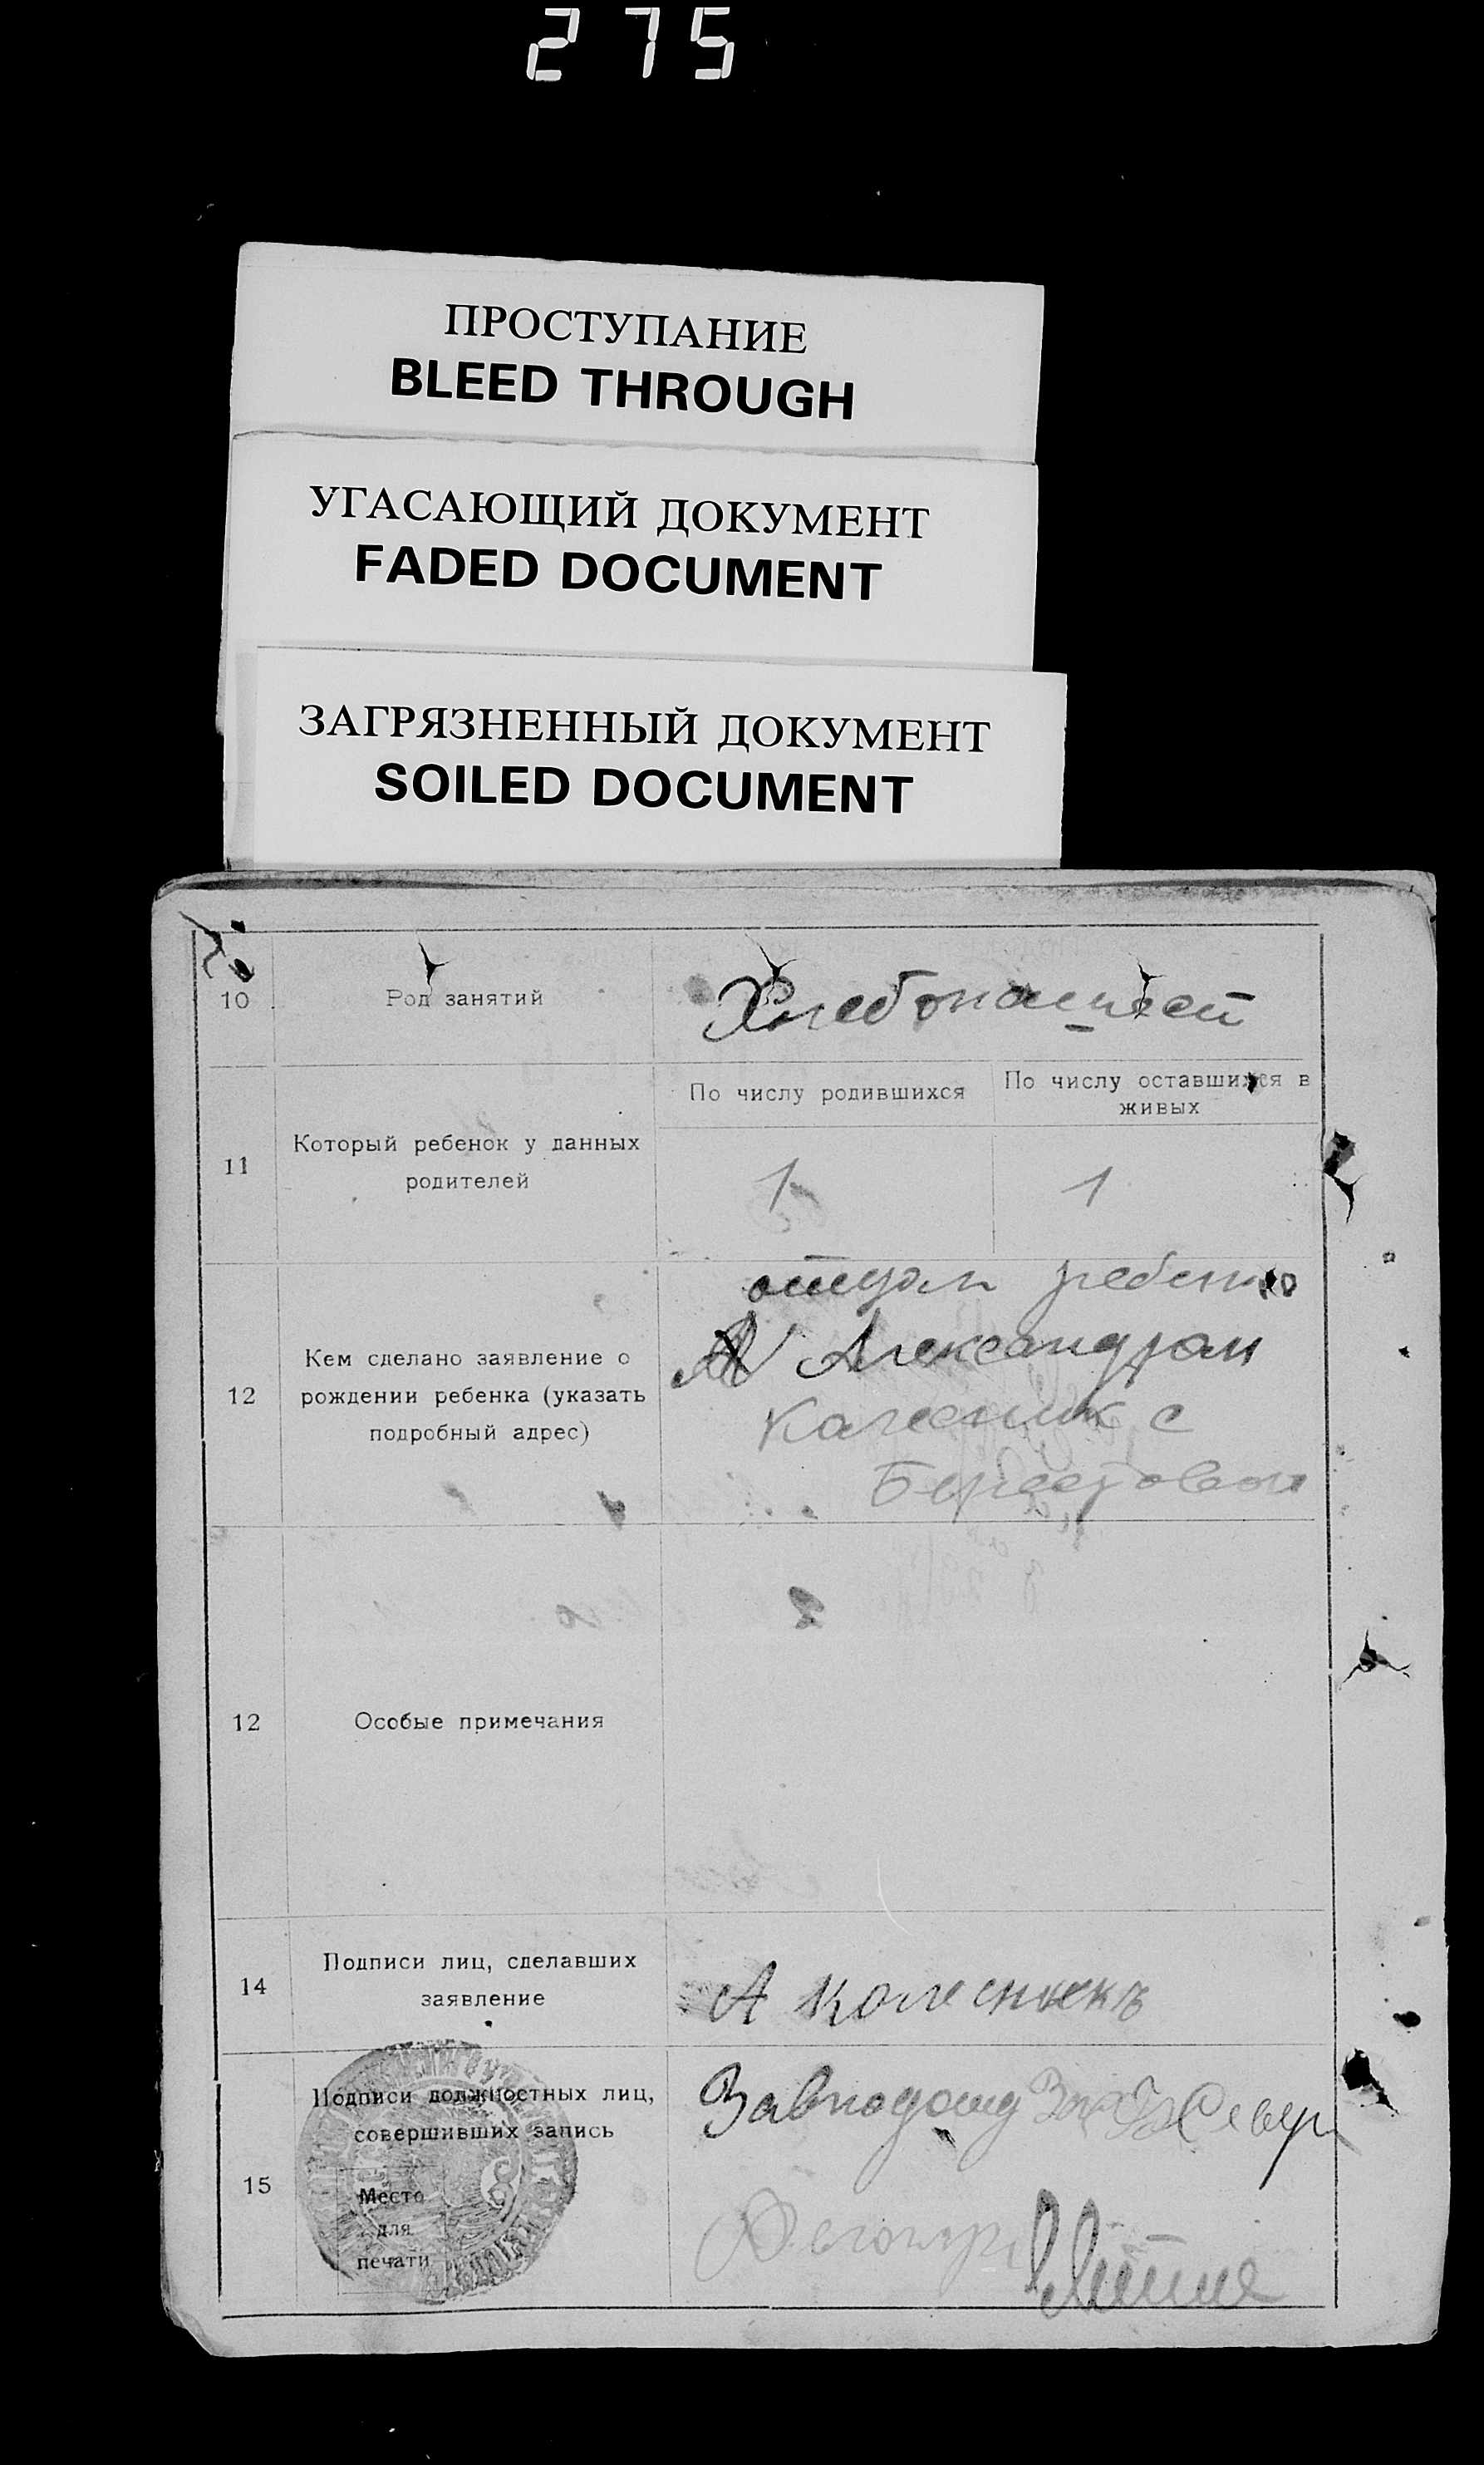 275
ПРОСТУПАНИЕ
BLEED THROUGH
УГАСАЮЩИЙ ДОКУМЕНТ
FADED DOCUMENT
ЗАГРЯЗНЕННЫЙ ДОКУМЕНТ
SOILED DOCUMENT
10 Род занятий
Хлебопашест
11 Который ребенок у данных
родителей
По числу родившихся
По числу оставшихся в
живых
1 1
12 Кем сделано заявление о
рождении ребенка (указать
подробный адрес)
отцом ребенка
Александром
Колесник с
12 Особые примечания
14 Подписи лиц, сделавших
заявление
А Колесныкъ
15 Подписи должностных лиц,
совершивших запись
Место
для
печати
Завподотд